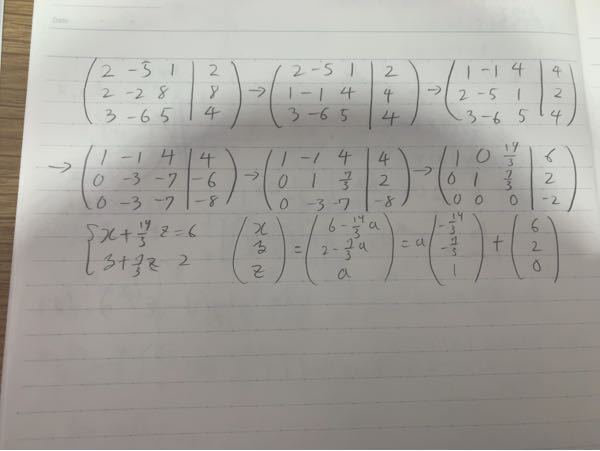 Date
( 2 -5 1 | 2 ; 2 -2 8 | 8 ; 3 -6 5 | 4 ) → ( 2 -5 1 | 2 ; 1 -1 4 | 4 ; 3 -6 5 | 4 ) → ( 1 -1 4 | 4 ; 2 -5 1 | 2 ; 3 -6 5 | 4 )
→ ( 1 -1 4 | 4 ; 0 -3 -7 | -6 ; 0 -3 -7 | -8 ) → ( 1 -1 4 | 4 ; 0 1 7/3 | 2 ; 0 -3 -7 | -8 ) → ( 1 0 14/3 | 6 ; 0 1 7/3 | 2 ; 0 0 0 | -2 )
{ x + 14/3 z = 6 ; 3 + 7/3 z 2 ( x ; 3 ; z ) = ( 6 - 14/3 a ; 2 - 7/3 a ; a ) = a ( -14/3 ; -7/3 ; 1 ) + ( 6 ; 2 ; 0 )